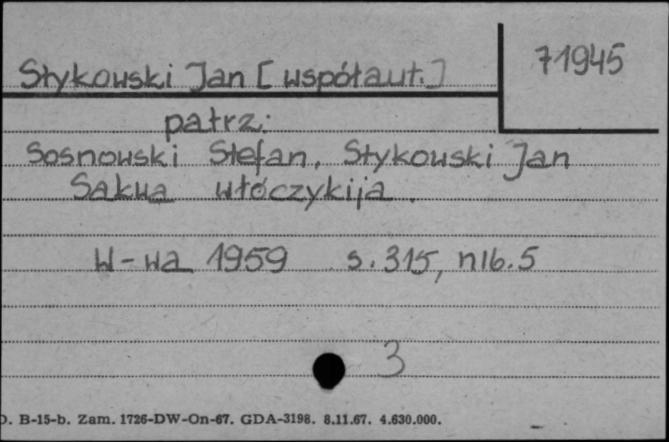 Stykowski Jan [współaut.]
71945
patrz:
Sosnowski Stefan, Stykowski Jan
Sakwa włóczykija.
W-wa 1959 s. 315, nlb. 5
3
D. B-15-b. Zam. 1726-DW-On-67. GDA-3198. 8.11.67. 4.630.000.